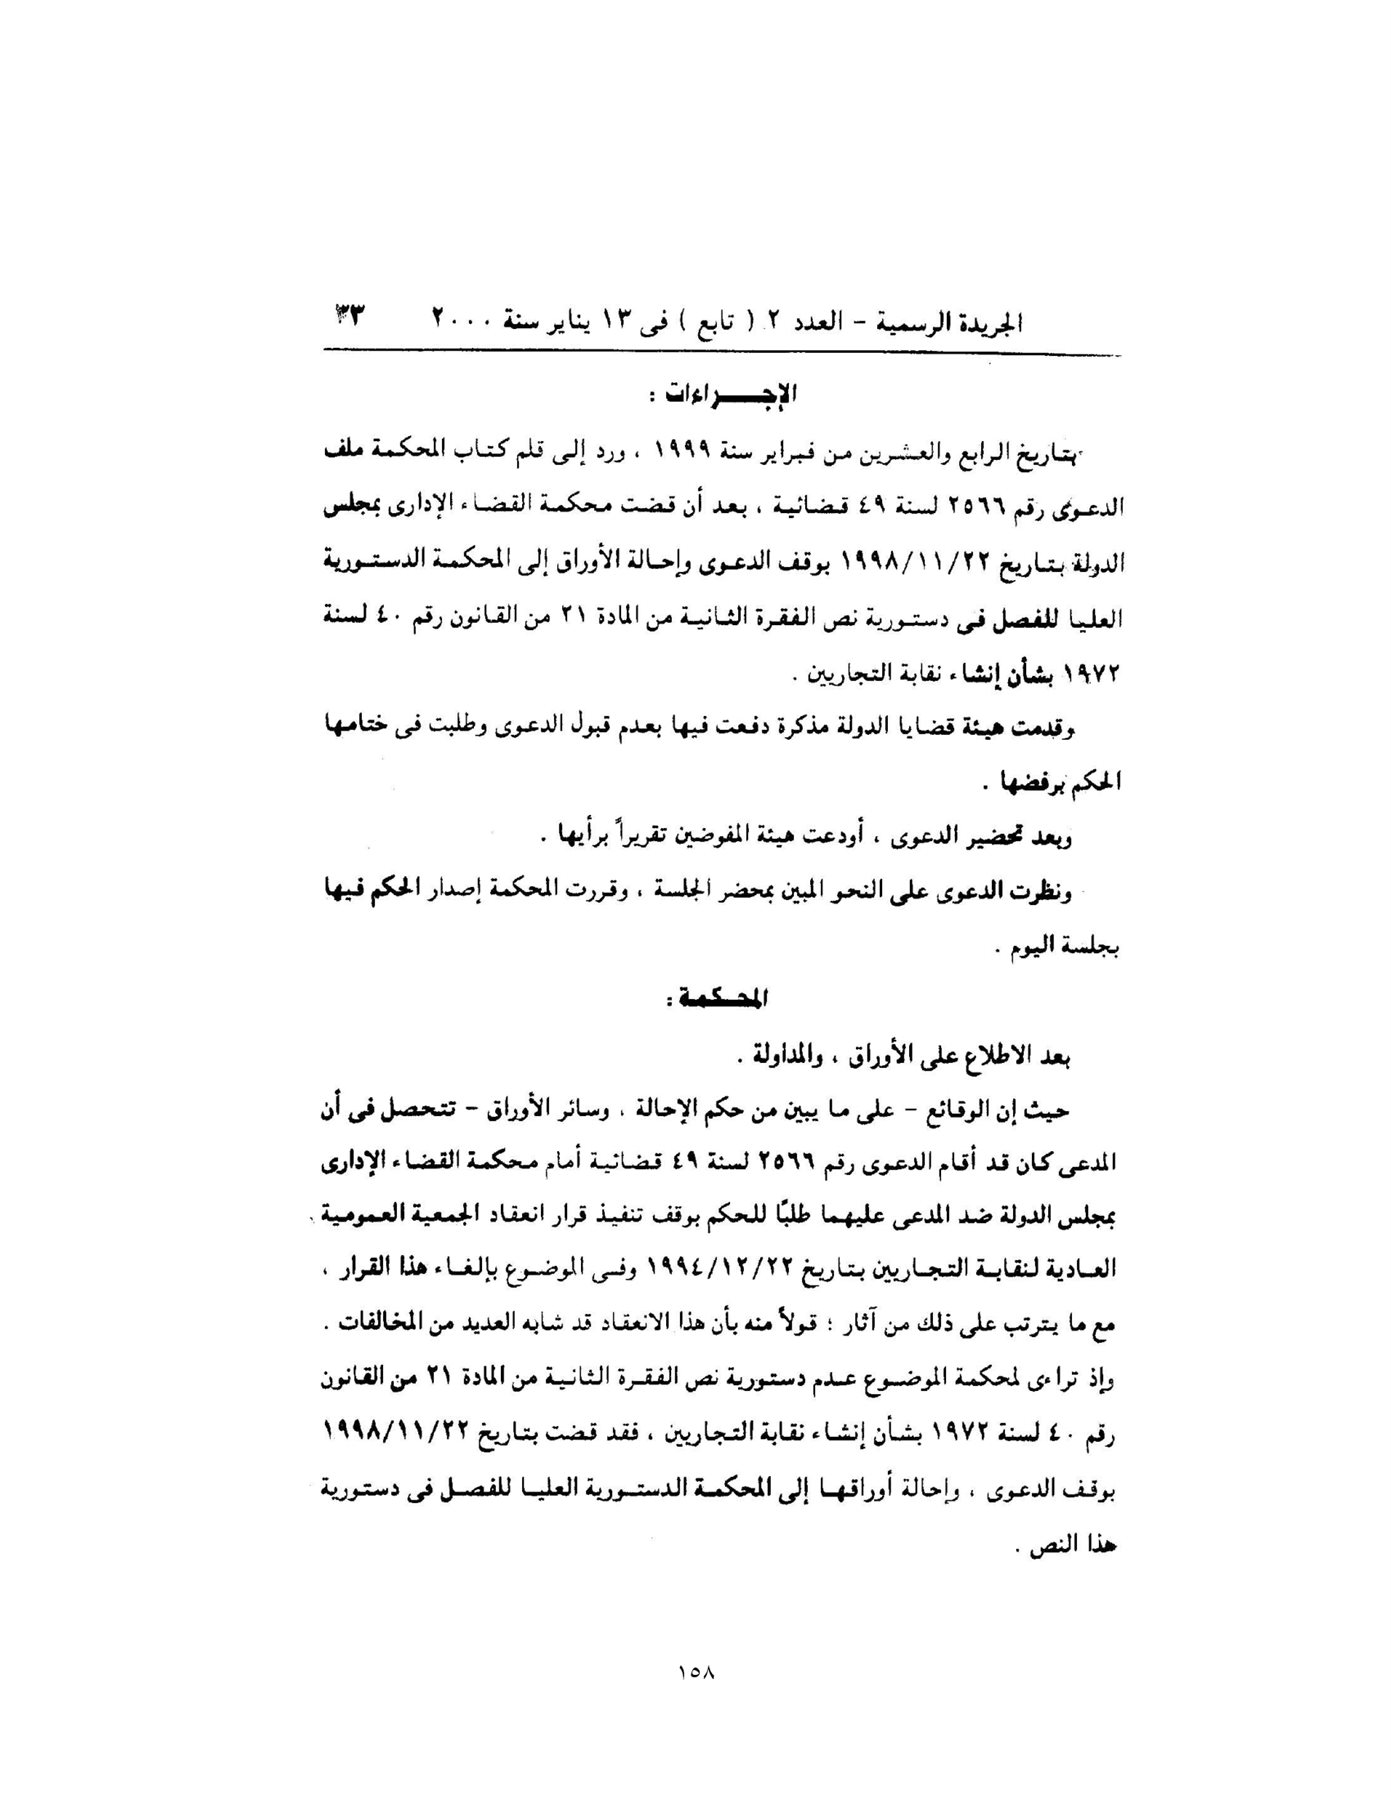 الجريدة الرسمية – العدد ٢ ( تابع ) فى ١٣ يناير سنة ٢٠٠٠ ٣٣
الإجـــراءات :
بتاريخ الرابع والعشرين من فبراير سنة ١٩٩٩ ، ورد إلى قلم كتاب المحكمة ملف
الدعوى رقم ٢٥٦٦ لسنة ٤٩ قضائية ، بعد أن قضت محكمة القضاء الإدارى بمجلس
الدولة بتاريخ ١٩٩٨/١١/٢٢ بوقف الدعوى وإحالة الأوراق إلى المحكمة الدستورية
العليا للفصل فى دستورية نص الفقرة الثانية من المادة ٢١ من القانون رقم ٤٠ لسنة
١٩٧٢ بشأن إنشاء نقابة التجاريين .
وقدمت هيئة قضايا الدولة مذكرة دفعت فيها بعدم قبول الدعوى وطلبت فى ختامها
الحكم برفضها .
وبعد تحضير الدعوى ، أودعت هيئة المفوضين تقريراً برأيها .
ونظرت الدعوى على النحو المبين بمحضر الجلسة ، وقررت المحكمة إصدار الحكم فيها
بجلسة اليوم .
المحكمة :
بعد الاطلاع على الأوراق ، والمداولة .
حيث إن الوقائع – على ما يبين من حكم الإحالة ، وسائر الأوراق – تتحصل فى أن
المدعى كان قد أقام الدعوى رقم ٢٥٦٦ لسنة ٤٩ قضائية أمام محكمة القضاء الإدارى
بمجلس الدولة ضد المدعى عليهما طلبًا للحكم بوقف تنفيذ قرار انعقاد الجمعية العمومية
العادية لنقابة التجاريين بتاريخ ١٩٩٤/١٢/٢٢ وفى الموضوع بإلغاء هذا القرار ،
مع ما يترتب على ذلك من آثار ؛ قولاً منه بأن هذا الانعقاد قد شابه العديد من المخالفات .
وإذ تراءى لمحكمة الموضوع عدم دستورية نص الفقرة الثانية من المادة ٢١ من القانون
رقم ٤٠ لسنة ١٩٧٢ بشأن إنشاء نقابة التجاريين ، فقد قضت بتاريخ ١٩٩٨/١١/٢٢
بوقف الدعوى ، وإحالة أوراقها إلى المحكمة الدستورية العليا للفصل فى دستورية
هذا النص .
١٥٨